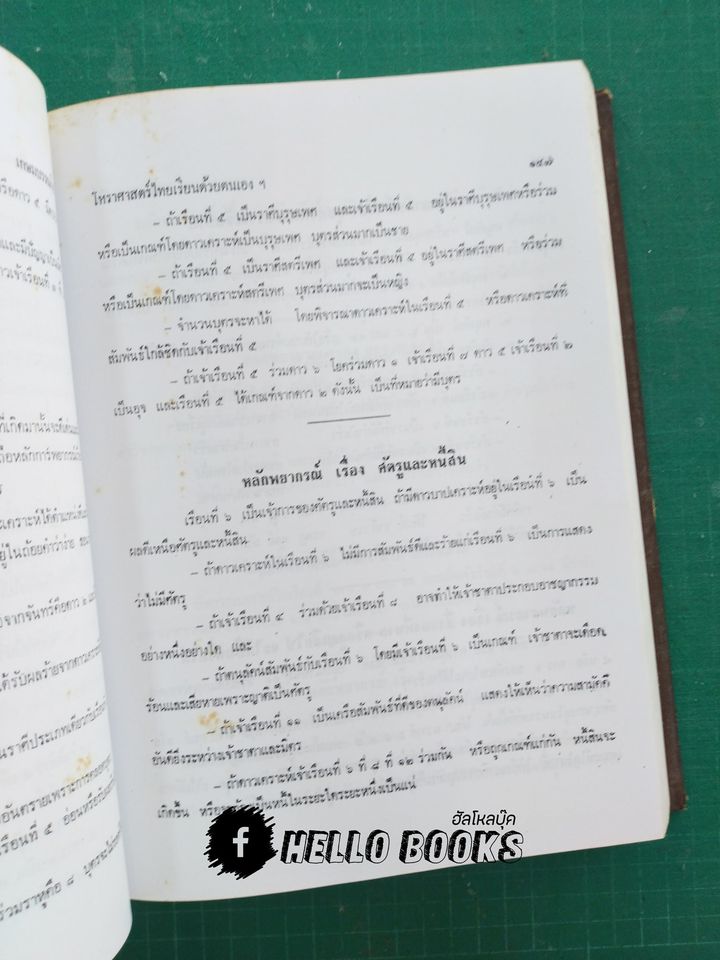 ๑๔๗
โหราศาสตร์ไทยเรียนด้วยตนเอง ฯ
– ถ้าเรือนที่ ๕ เป็นราศีบุรุษเพศ และเจ้าเรือนที่ ๕ อยู่ในราศีบุรุษเพศหรือร่วม
หรือเป็นเกณฑ์โดยดาวเคราะห์เป็นบุรุษเพศ บุตรส่วนมากเป็นชาย
– ถ้าเรือนที่ ๕ เป็นราศีสตรีเพศ และเจ้าเรือนที่ ๕ อยู่ในราศีสตรีเพศ หรือร่วม
หรือเป็นเกณฑ์โดยดาวเคราะห์สตรีเพศ บุตรส่วนมากจะเป็นหญิง
– จำนวนบุตรจะหาได้ โดยพิจารณาดาวเคราะห์ในเรือนที่ ๕ หรือดาวเคราะห์ที่
สัมพันธ์ใกล้ชิดกับเจ้าเรือนที่ ๕
– ถ้าเจ้าเรือนที่ ๕ ร่วมดาว ๖ โยคร่วมดาว ๑ เจ้าเรือนที่ ๗ ดาว ๕ เจ้าเรือนที่ ๒
เป็นอุจ และเรือนที่ ๕ ได้เกณฑ์จากดาว ๒ ดังนั้น เป็นที่หมายว่ามีบุตร
หลักพยากรณ์ เรื่อง ศัตรูและหนี้สิน
เรือนที่ ๖ เป็นเจ้าการของศัตรูและหนี้สิน ถ้ามีดาวบาปเคราะห์อยู่ในเรือนที่ ๖ เป็น
ผลดีเหนือศัตรูและหนี้สิน
– ถ้าดาวเคราะห์ในเรือนที่ ๖ ไม่มีการสัมพันธ์ดีและร้ายแก่เรือนที่ ๖ เป็นการแสดง
ว่าไม่มีศัตรู
– ถ้าเจ้าเรือนที่ ๔ ร่วมด้วยเจ้าเรือนที่ ๘ อาจทำให้เจ้าชาตาประกอบอาชญากรรม
อย่างหนึ่งอย่างใด และ
– ถ้าตนุลัคน์สัมพันธ์กับเรือนที่ ๖ โดยมีเจ้าเรือนที่ ๖ เป็นเกณฑ์ เจ้าชาตาจะเดือด
ร้อนและเสียหายเพราะญาติเป็นศัตรู
– ถ้าเจ้าเรือนที่ ๑๑ เป็นเครือสัมพันธ์ที่ดีของตนุลัคน์ แสดงให้เห็นว่าความสามัคคี
อันดียิ่งระหว่างเจ้าชาตาและมิตร
– ถ้าดาวเคราะห์เจ้าเรือนที่ ๖ ที่ ๘ ที่ ๑๒ ร่วมกัน หรือถูกเกณฑ์แก่กัน หนี้สินจะ
เกิดขึ้น หรือ เป็นหนี้ในระยะใดระยะหนึ่งเป็นแน่
ฮัลโหลบุ๊ค
f HELLO BOOKS